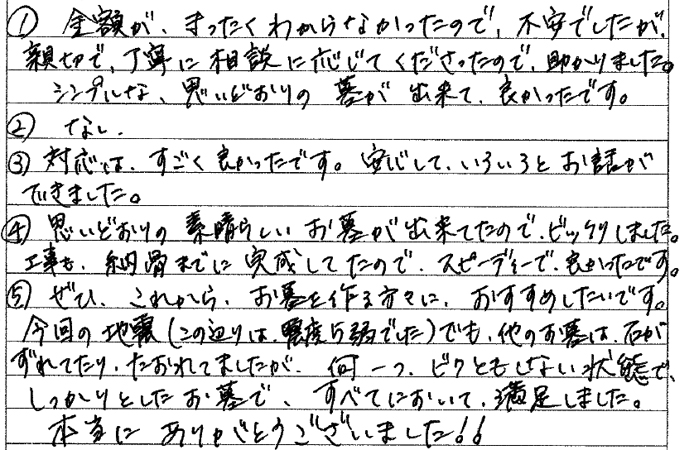 ① 金額が、まったくわからなかったので、不安でしたが、
親切で、丁寧に相談に応じてくださったので、助かりました。
シンプルな、思いどおりの墓が出来て、良かったです。
② なし.
③ 対応は、すごく良かったです。安心して、いろいろとお話が
できました。
④ 思いどおりの素晴らしいお墓が出来てたので、ビックリしました。
工事も、納骨までに完成してたので、スピーディーで、良かったです。
⑤ ぜひ、これから、お墓を作る方々に、おすすめしたいです。
今回の地震(この辺りは、震度5弱でした)でも、他のお墓は、石が
ずれてたり、たおれてましたが、何一つ、ビクともしない状態で、
しっかりとしたお墓で、すべてにおいて、満足しました。
本当にありがとうございました!!